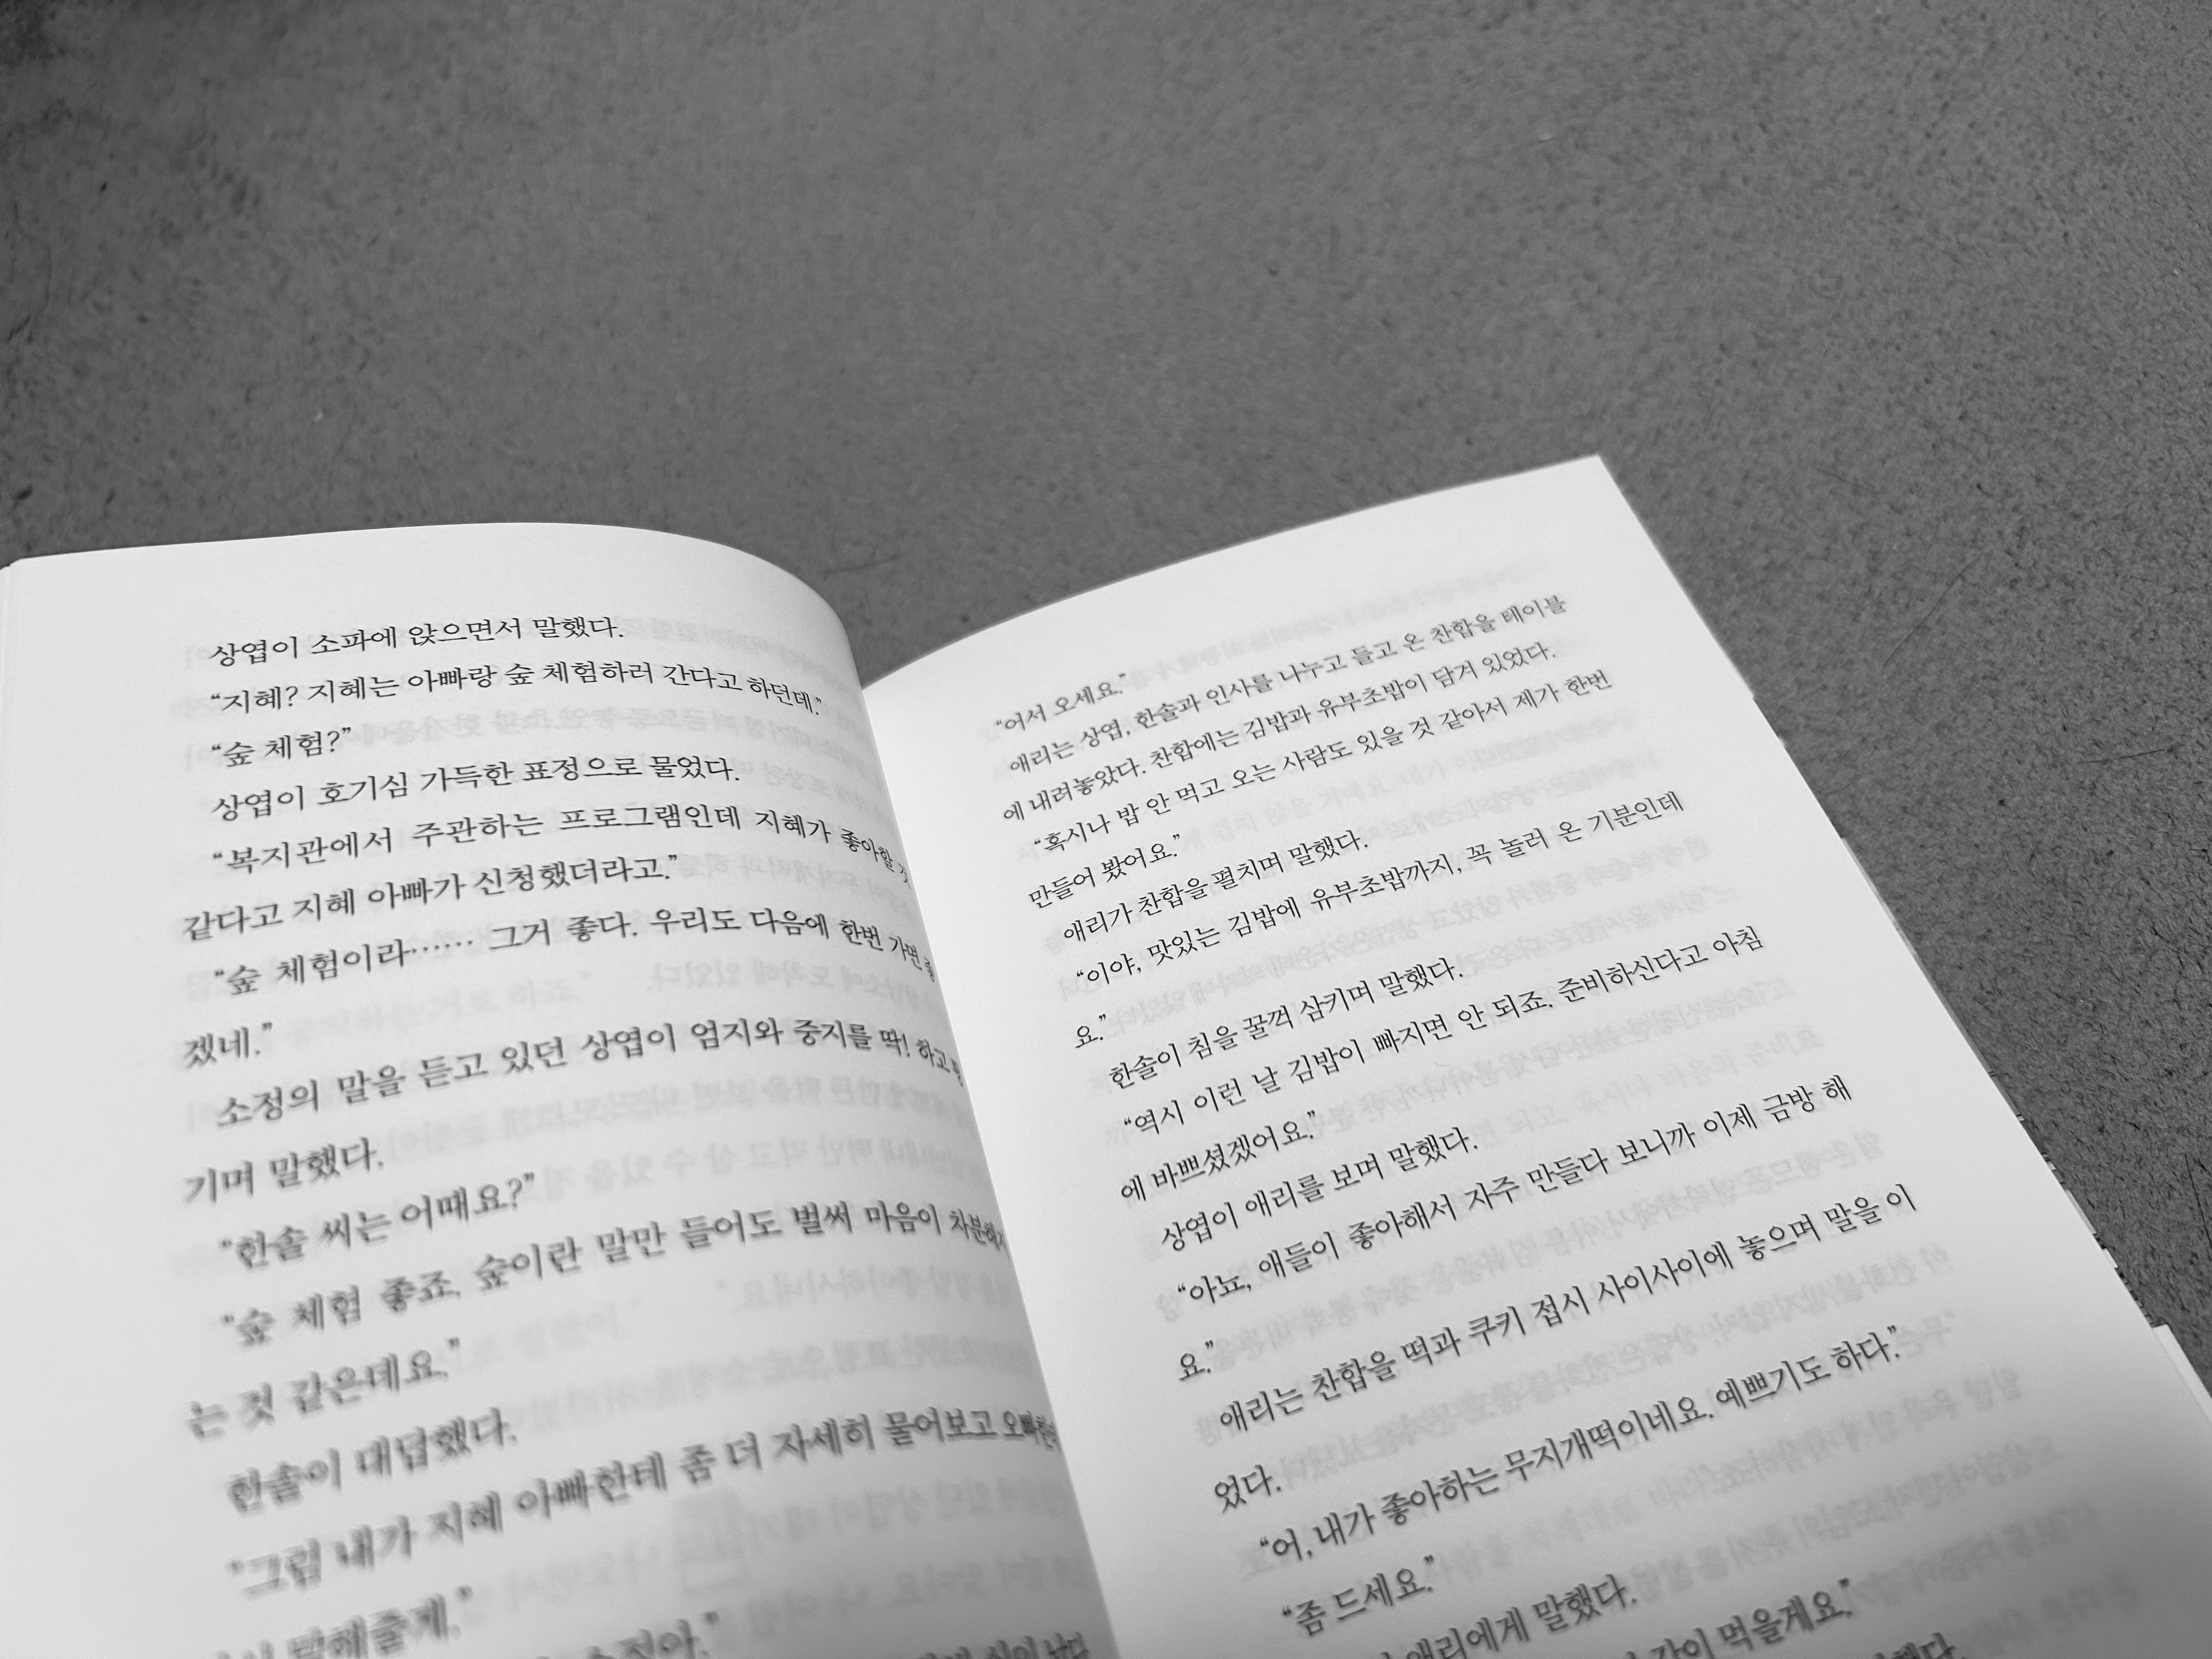 상엽이 소파에 앉으면서 말했다.
“지혜? 지혜는 아빠랑 숲 체험하러 간다고 하던데.”
“숲 체험?”
상엽이 호기심 가득한 표정으로 물었다.
“복지관에서 주관하는 프로그램인데 지혜가 좋아할 것
같다고 지혜 아빠가 신청했더라고.”
“숲 체험이라…… 그거 좋다. 우리도 다음에 한번 가면 좋
겠네.”
소정의 말을 듣고 있던 상엽이 엄지와 중지를 딱! 하고
기며 말했다.
“한솔 씨는 어때요?”
“숲 체험 좋죠. 숲이란 말만 들어도 벌써 마음이 차분해지
는 것 같은데요.”
한솔이 대답했다.
“그럼 내가 지혜 아빠한테 좀 더 자세히 물어보고 오빠한테
말해줄게.”
“어서 오세요.”
애리는 상엽, 한솔과 인사를 나누고 들고 온 찬합을 테이블
에 내려놓았다. 찬합에는 김밥과 유부초밥이 담겨 있었다.
“혹시나 밥 안 먹고 오는 사람도 있을 것 같아서 제가 한번
만들어 봤어요.”
애리가 찬합을 펼치며 말했다.
“이야, 맛있는 김밥에 유부초밥까지, 꼭 놀러 온 기분인데
요.”
한솔이 침을 꿀꺽 삼키며 말했다.
“역시 이런 날 김밥이 빠지면 안 되죠. 준비하신다고 아침
에 바쁘셨겠어요.”
상엽이 애리를 보며 말했다.
“아뇨, 애들이 좋아해서 자주 만들다 보니까 이제 금방 해
요.”
애리는 찬합을 떡과 쿠키 접시 사이사이에 놓으며 말을 이
었다.
“어, 내가 좋아하는 무지개떡이네요. 예쁘기도 하다.”
“좀 드세요.”
애리에게 말했다.
같이 먹을게요.”